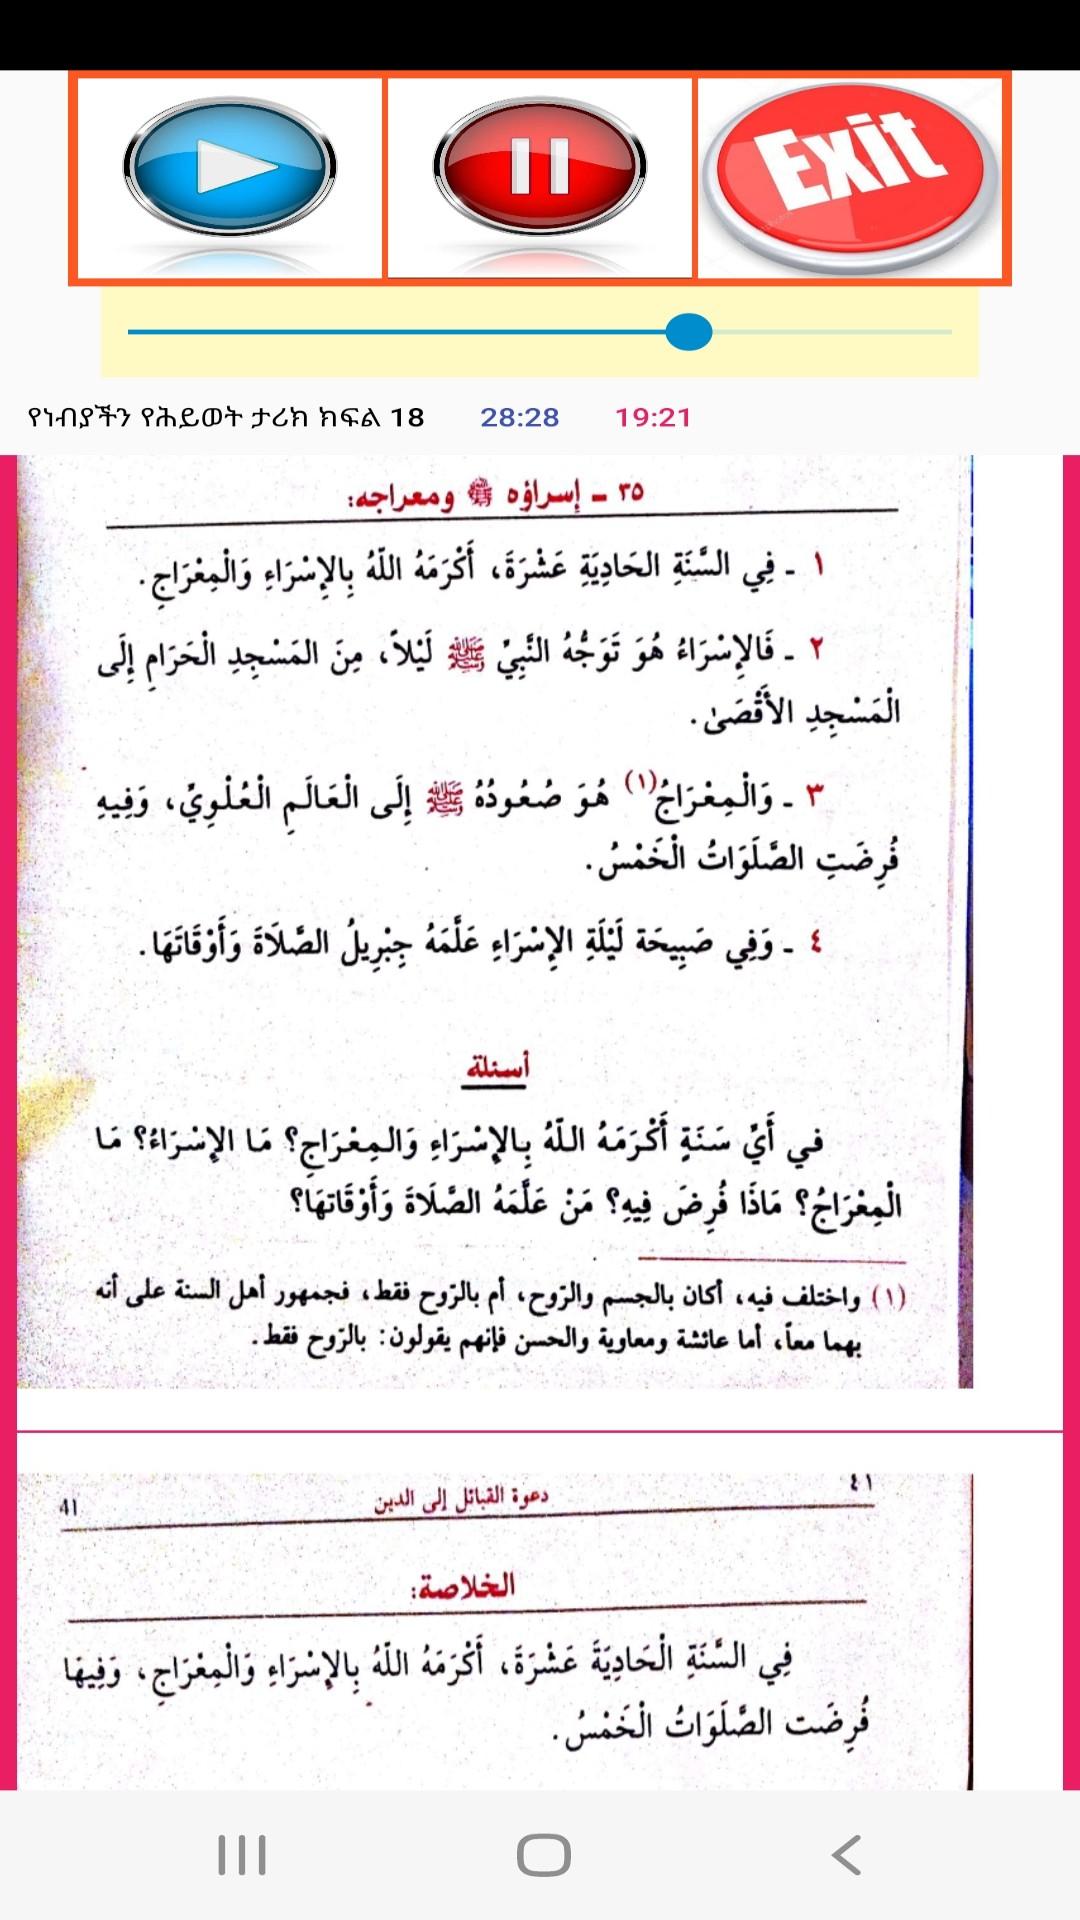 Exit
የነብያችን የሕይወት ታሪክ ክፍል 18 28:28 19:21
٣٥ ـ إسراؤه ﷺ ومعراجه:
١ ـ فِي السَّنَةِ الحَادِيَةِ عَشْرَةَ، أَكْرَمَهُ اللّهُ بِالإِسْرَاءِ وَالْمِعْرَاجِ.
٢ ـ فَالإِسْرَاءُ هُوَ تَوَجُّهُ النَّبِيِّ ﷺ لَيْلاً، مِنَ المَسْجِدِ الْحَرَامِ إِلَى
الْمَسْجِدِ الأَقْصَىٰ.
٣ ـ وَالْمِعْرَاجُ(١) هُوَ صُعُودُهُ ﷺ إِلَى الْعَالَمِ الْعُلْوِيِّ، وَفِيهِ
فُرِضَتِ الصَّلَوَاتُ الْخَمْسُ.
٤ ـ وَفِي صَبِيحَة لَيْلَةِ الإِسْرَاءِ عَلَّمَهُ جِبْرِيلُ الصَّلَاةَ وَأَوْقَاتَهَا.
أسئلة
في أَيِّ سَنَةٍ أَكْرَمَهُ اللّهُ بِالإِسْرَاءِ وَالمِعْرَاجِ؟ مَا الإِسْرَاءُ؟ مَا
الْمِعْرَاجُ؟ مَاذَا فُرِضَ فِيهِ؟ مَنْ عَلَّمَهُ الصَّلَاةَ وَأَوْقَاتهَا؟
(١) واختلف فيه، أكان بالجسم والرّوح، أم بالرّوح فقط، فجمهور أهل السنة على أنه
بهما معاً، أما عائشة ومعاوية والحسن فإنهم يقولون: بالرّوح فقط.
٤١ دعوة القبائل إلى الدين 41
الخلاصة:
فِي السَّنَةِ الْحَادِيَةَ عَشْرَةَ، أَكْرَمَهُ اللّهُ بِالإِسْرَاءِ وَالْمِعْرَاجِ، وَفِيهَا
فُرِضَت الصَّلَوَاتُ الْخَمْسُ.